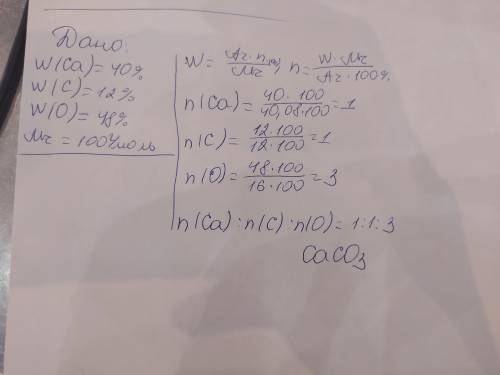 Дано:
W(Ca) = 40%
W(C) = 12%
W(O) = 48%
Mr = 100г/моль
W = Ar · n / Mr, n = W · Mr / Ar · 100%
n(Ca) = 40 · 100 / 40,08 · 100 = 1
n(C) = 12 · 100 / 12 · 100 = 1
n(O) = 48 · 100 / 16 · 100 = 3
n(Ca) : n(C) : n(O) = 1:1:3
CaCO₃